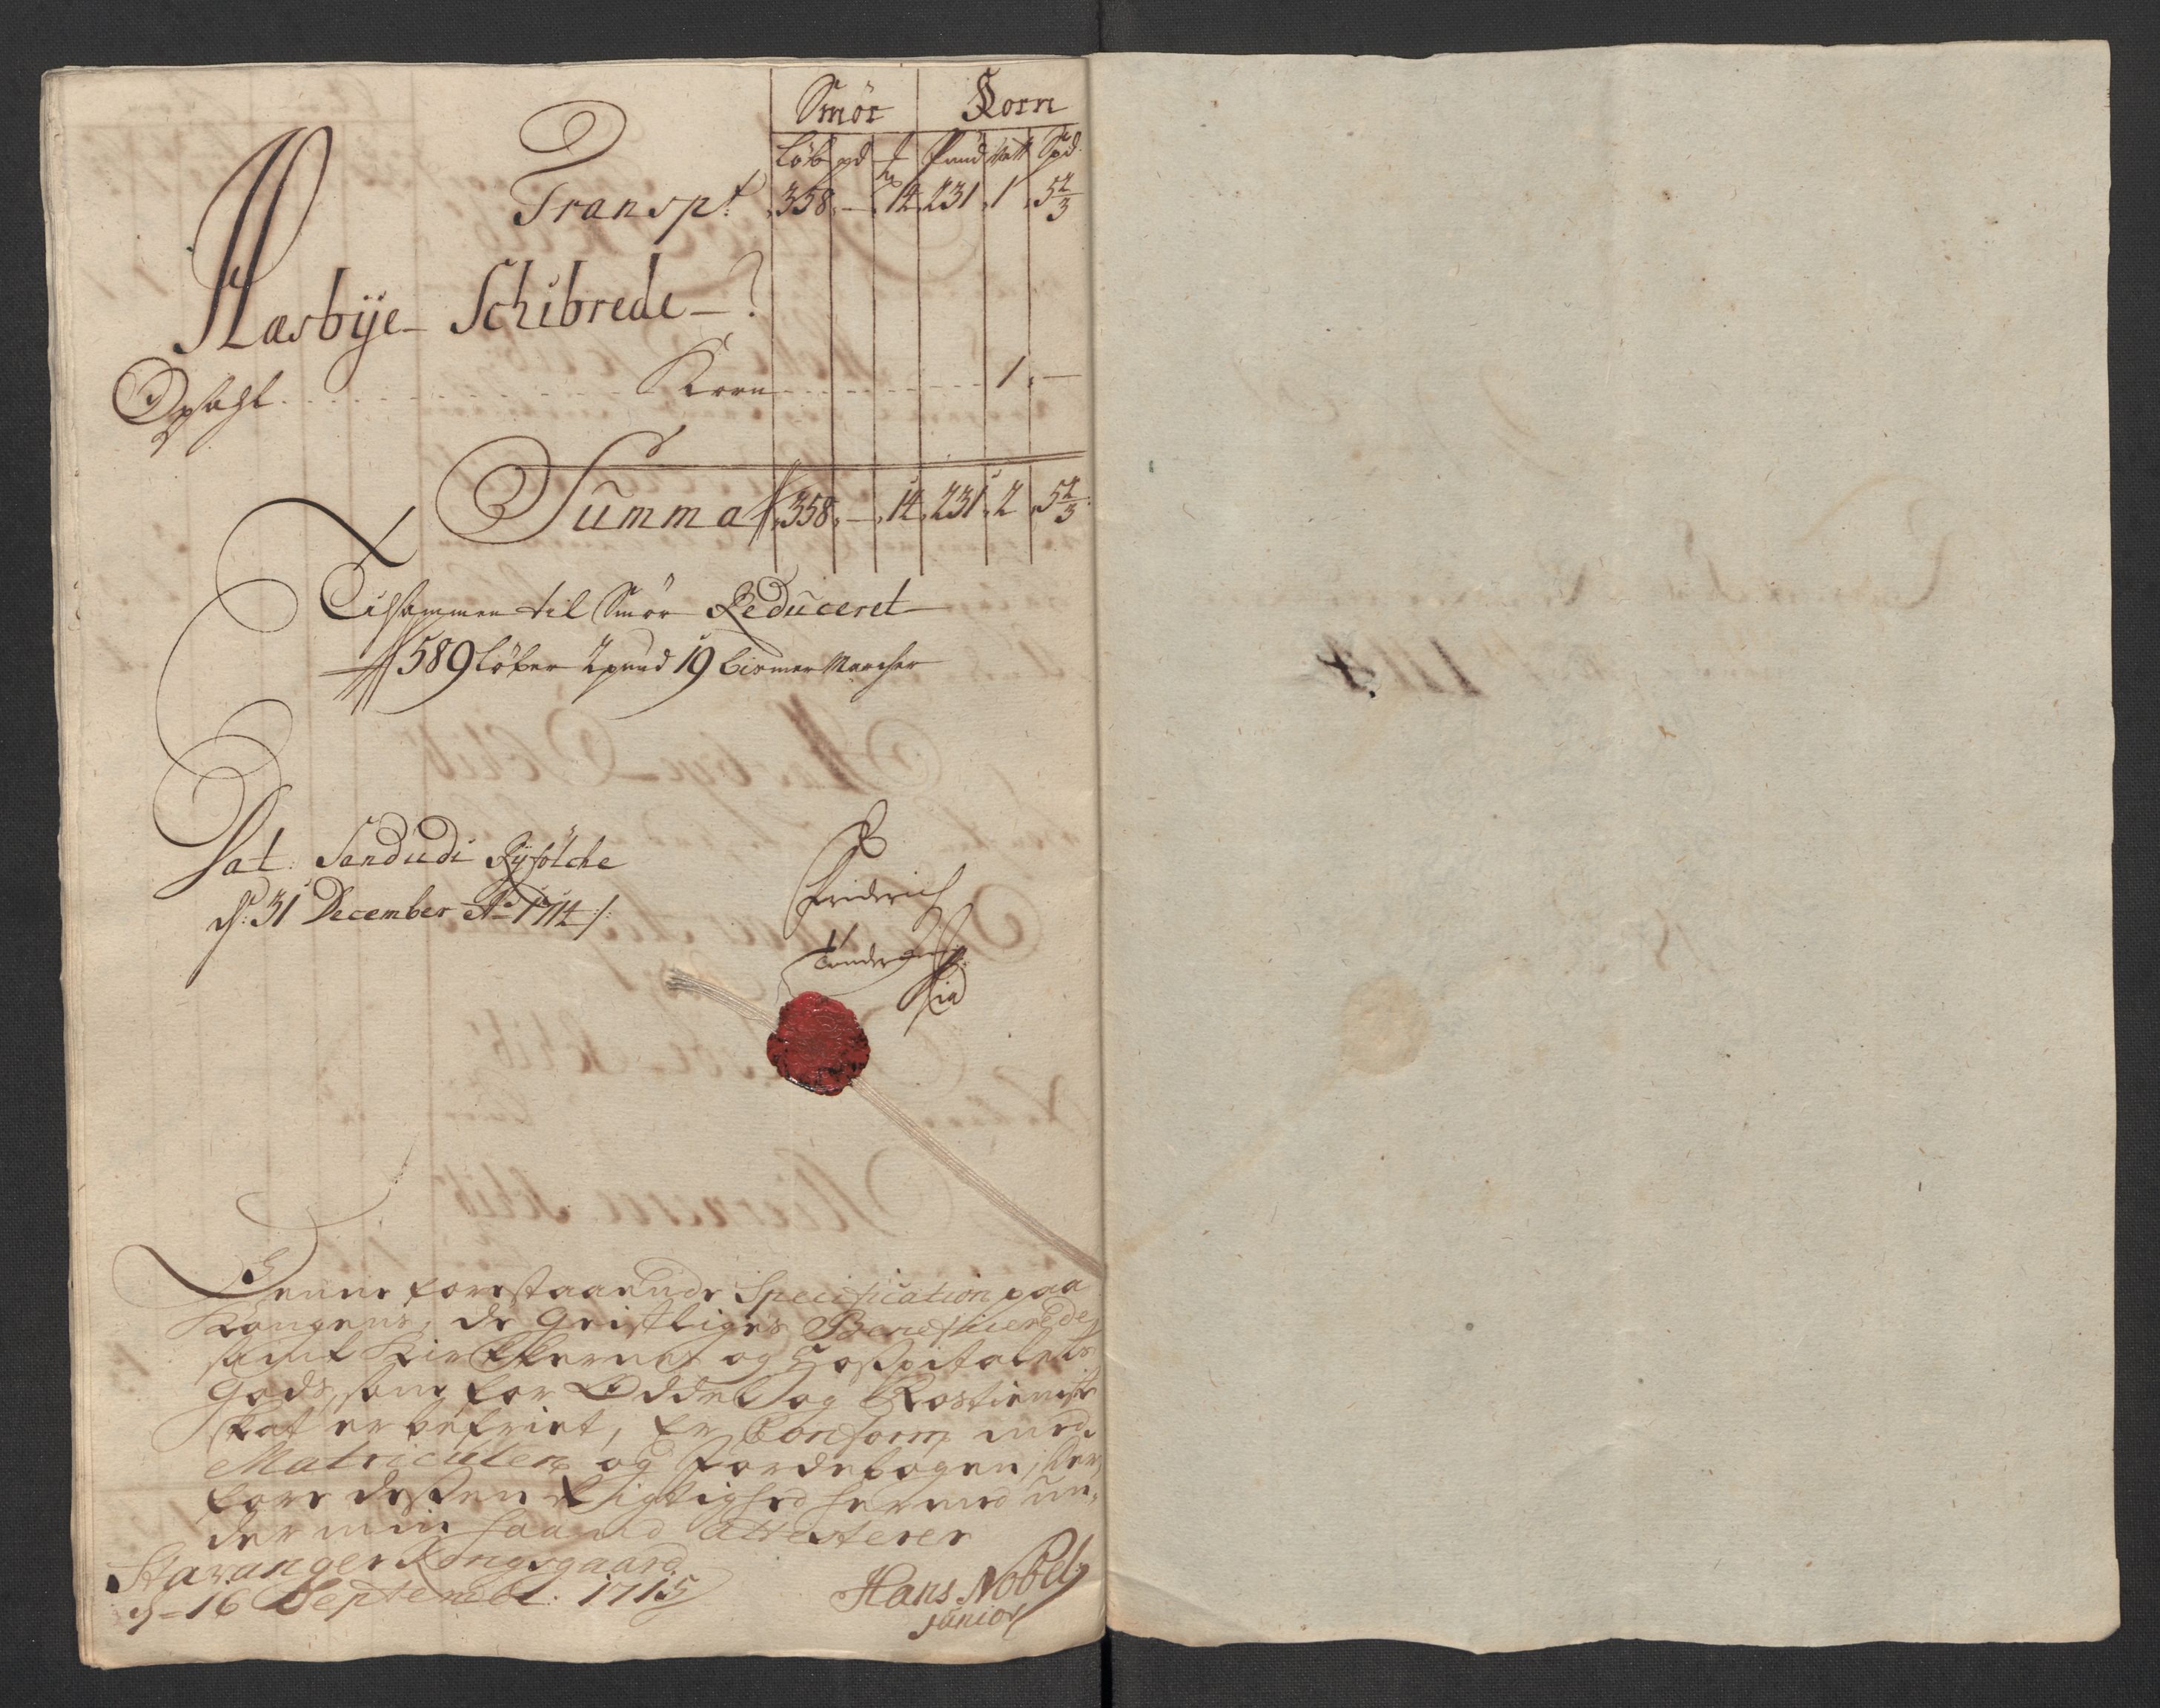 Smör Korn
Löb pd ℔ Pund vatt Spd
Transpt 358 — 14 231 1 5 2/3
Hasbÿe Schibrede
Opsahl Korn 1 —
Summa 358 — 14 231 2 5 2/3
Tilsammen til Smör Reduceret
589 löber 2 pund 19 bismer Marcher
Dat. Sandudi Rÿfölche
d: 31 December Ao 1714
Friderich
Denne forestaaende Specification paa
Kongens, de Geistliges Beneficerede
samt Kirkkernes og Hospitalets
Gods, som for Oddel og Rostieniste
skat er befriet, er Conform med
Matriculen og Jordebogen, der
fore dessen Rigtighed hermed un,
der min haand attesterer
Stavanger Kongsgaard
d= 16 Septembr: 1715
Hans Nobel
junior